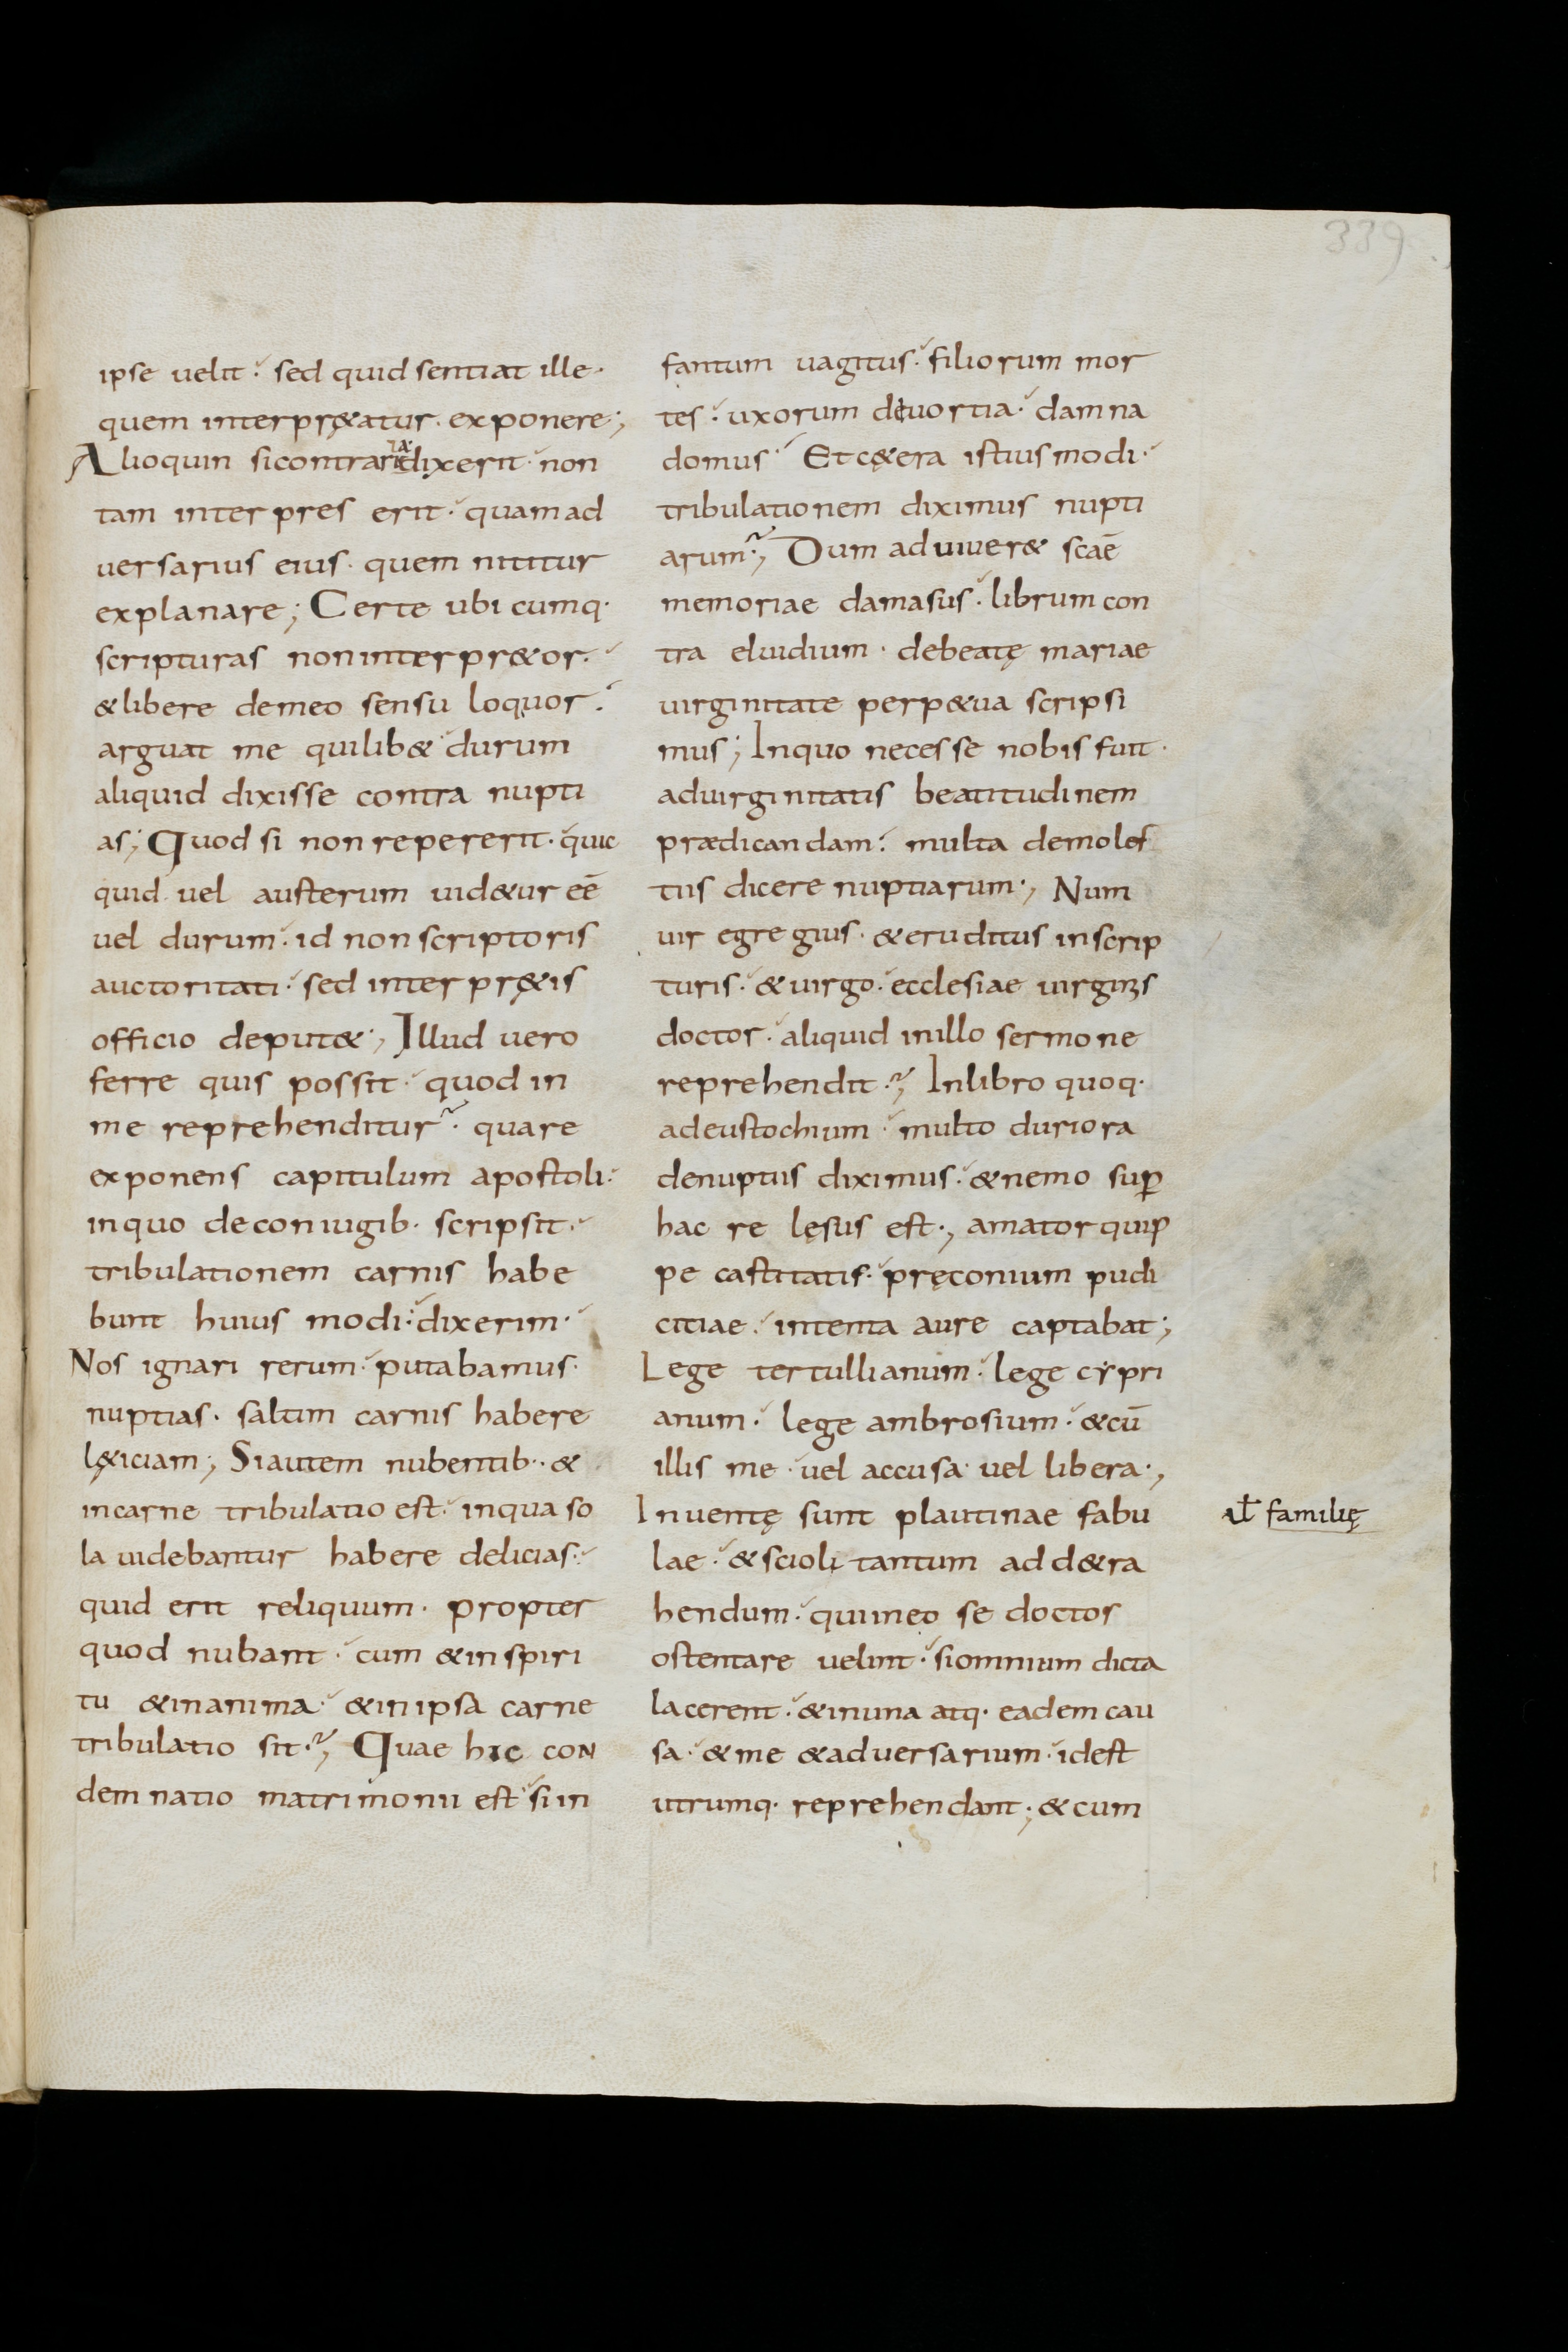 339
ipse uelit· sed quid sentiat ille·
quem interpr&atur· exponere;
Alioquin sicontraria dixerit· non
tam interpres erit· quamad
uersarius eius· quem nititur
explanare; Certe ubi cumq·
scripturas noninterpr&or·
&libere demeo sensu loquor·
arguat me quilib& durum
aliquid dixisse contra nupti
as; Quod si non repererit· quic
quid uel austerum uid&ur eē
uel durum· id non scriptoris
auctoritati· sed interpr&is
officio deput&; Illud uero
ferre quis possit· quod in
me reprehenditur· quare
exponens capitulum apostoli·
inquo deconiugib· scripsit·
tribulationem carnis habe
bunt huius modi· dixerim·
Nos ignari rerum· putabamus·
nuptias· saltim carnis habere
l&iciam; Siautem nubentib·· &
incarne tribulatio est· inqua so
la uidebantur habere delicias·
quid erit reliquum· propter
quod nubant· cum &inspiri
tu &inanima· &inipsa carne
tribulatio sit·; Quae hic con
demnatio matrimonii est· siin
fantum uagitus· filiorum mor
tes· uxorum diuortia· damna
domus· Etc&era istiusmodi·
tribulationem diximus nupti
arum·; Dum aduiuer& scāe
memoriae damasus· librumcon
tra eluidium· debeatę mariae
uirginitate perp&ua scripsi
mus; Inquo necesse nobis fuit·
aduirginitatis beatitudinem
prædicandam· multa demoles
tiis dicere nuptiarum·; Num
uir egregius· &eruditus inscrip
turis· &uirgo· ecclesiae uirginis
doctor· aliquid inillo sermone
reprehendit·; Inlibro quoq·
adeustochium· multo duriora
denuptiis diximus· &nemo suꝑ
hac re lęsus est·; amator quip
pe castitatis· pręconium pudi
citiae· intenta aure captabat;
Lege tertullianum· lege cypri
anum· lege ambrosium· &cū
illis me· uel accusa· uel libera·;
Inuentę sunt plautinae fabu
lae· &scioli tantum add&ra
hendum· quiineo se doctos
ostentare uelint· siomnium dicta
lacerent· &inuna atq· eadem cau
sa· &me &aduersarium· idest
utrumq· reprehendant; &cum
uł familię